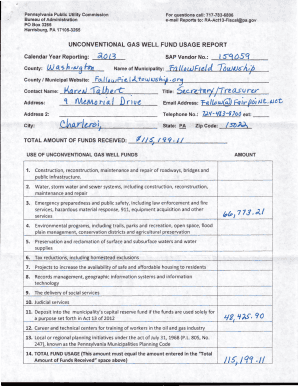 Pennsylvania Public Utility Commission
Bureau of Administration
PO Box 3265
Harrisburg, PA 17105-3265
For questions call: 717-783-6800
e-mail Reports to: RA-Act13-Fiscal@pa.gov
UNCONVENTIONAL GAS WELL FUND USAGE REPORT
Calendar Year Reporting: 2013 SAP Vendor No.: 159059
County: Washington Name of Municipality: Fallowfield Township
County / Municipal Website: Fallowfieldtownship.org
Contact Name: Karen Talbert Title: Secretary/Treasurer
Address: 9 Memorial Drive Email Address: Fallow@Fairpoint.net
Address 2: Telephone No.: ext:
City: Charleroi, State: PA Zip Code: 15022
TOTAL AMOUNT OF FUNDS RECEIVED: $115,199.11
USE OF UNCONVENTIONAL GAS WELL FUNDS AMOUNT
1. Construction, reconstruction, maintenance and repair of roadways, bridges and
public infrastructure.
2. Water, storm water and sewer systems, including construction, reconstruction,
maintenance and repair
3. Emergency preparedness and public safety, including law enforcement and fire
services, hazardous material response, 911, equipment acquisition and other
services 66,773.21
4. Environmental programs, including trails, parks and recreation, open space, flood
plain management, conservation districts and agricultural preservation
5. Preservation and reclamation of surface and subsurface waters and water
supplies
6. Tax reductions, including homestead exclusions
7. Projects to increase the availability of safe and affordable housing to residents
8. Records management, geographic information systems and information
technology
9. The delivery of social services
10. Judicial services
11. Deposit into the municipality's capital reserve fund if the funds are used solely for
a purpose set forth in Act 13 of 2012 48,425.90
12. Career and technical centers for training of workers in the oil and gas industry
13. Local or regional planning initiatives under the act of July 31, 1968 (P.L. 805, No.
247), known as the Pennsylvania Municipalities Planning Code
14. TOTAL FUND USAGE (This amount must equal the amount entered in the "Total
Amount of Funds Received" space above) 115,199.11